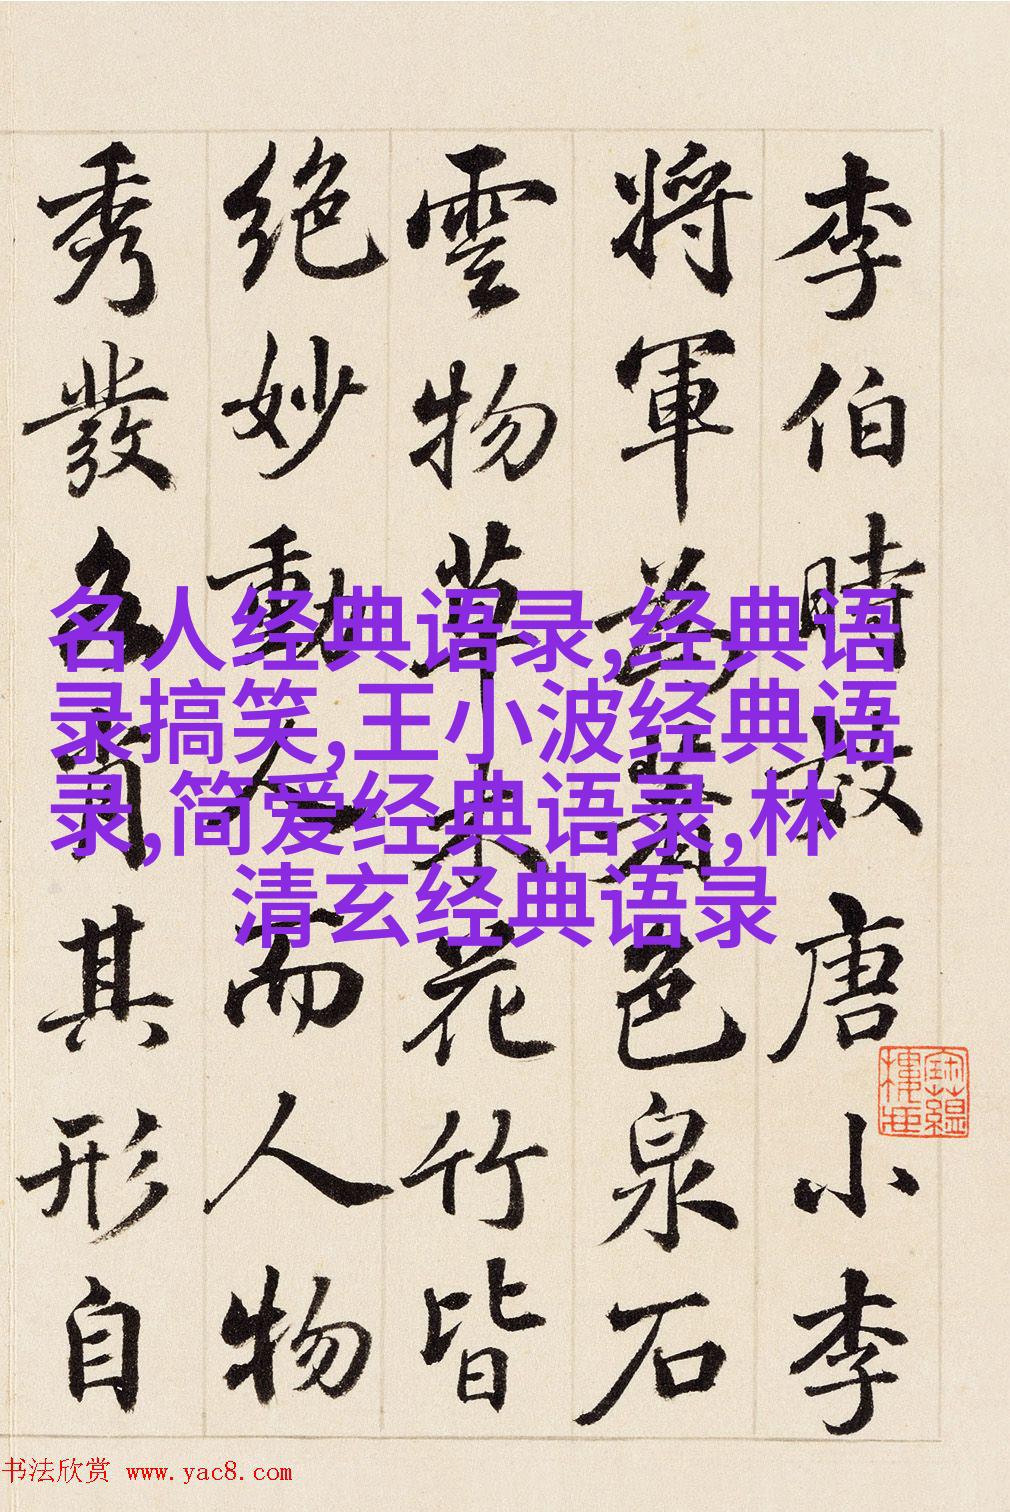 李伯時效唐小李
將軍為著色泉石
雲物草木花竹皆
絕妙動人而人物
秀發各肖其形自
名人经典语录,经典语
录搞笑,王小波经典语
录,简爱经典语录,林
清玄经典语录
书法欣赏 www.yac8.com